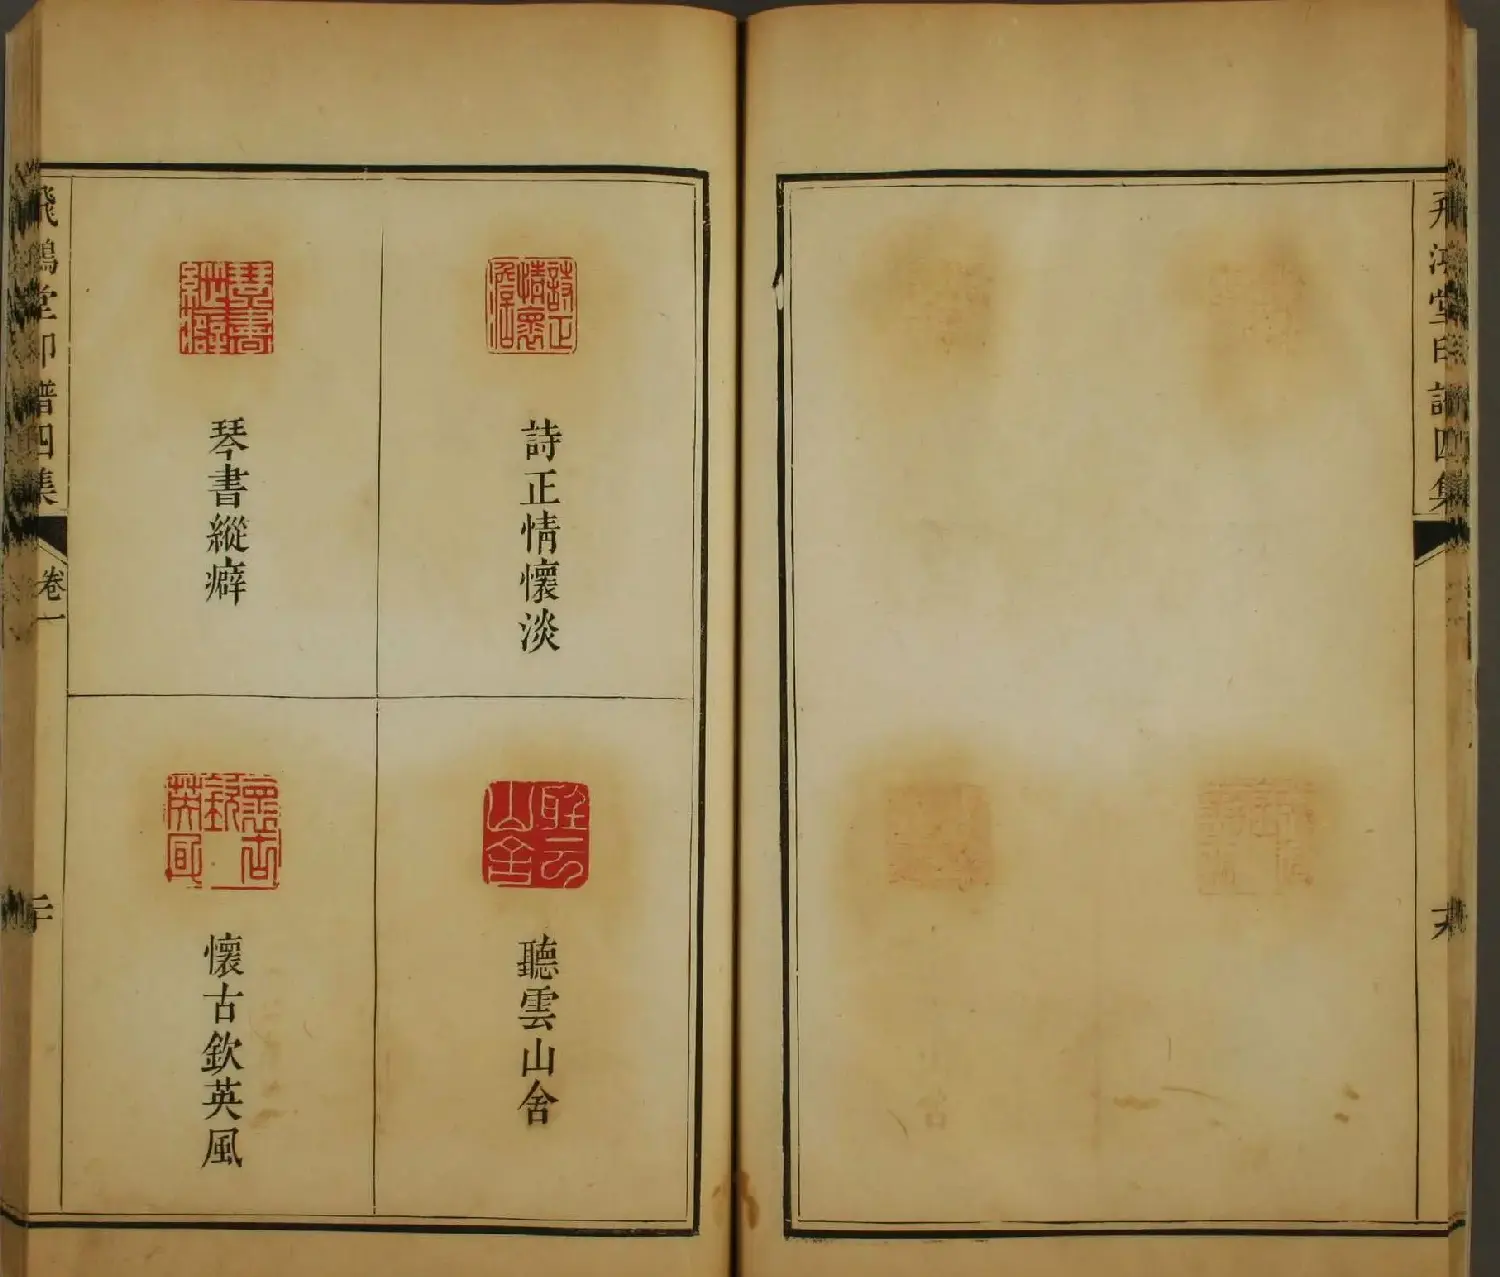 飛鴻堂印譜四集
詩正情懷淡
琴書縱癖
聽雲山舍
懷古欽英風
飛鴻堂印譜四集
卷一
二十